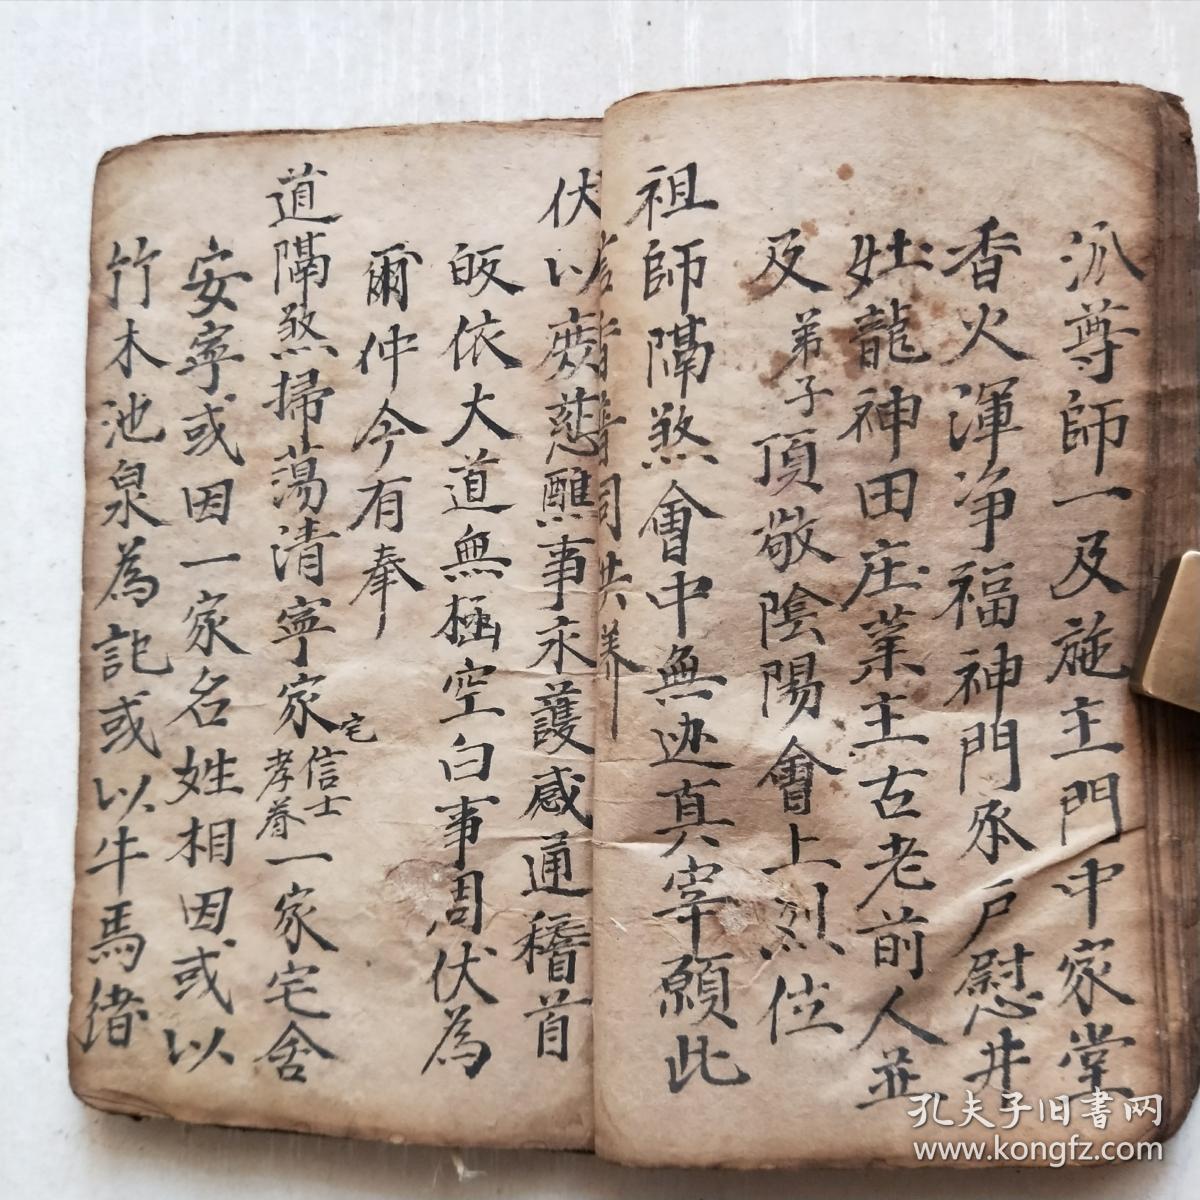 派尊師一及施主門中家堂
香火渾净福神門丞户慰井
灶龍神田庄業主古老前人並
及弟子頂敬陰陽會上烈位
祖師隔煞會中無迹真宰願此
香普同共养
伏以慈醮事永護感通稽首
皈依大道無極空白事周伏為
爾仲今有奉
道隔煞掃蕩清寧家宅信士孝眷一家宅舍
安寧或因一家名姓相因或以
竹木池泉為記或以牛馬猪
孔夫子旧书网
www.kongfz.com